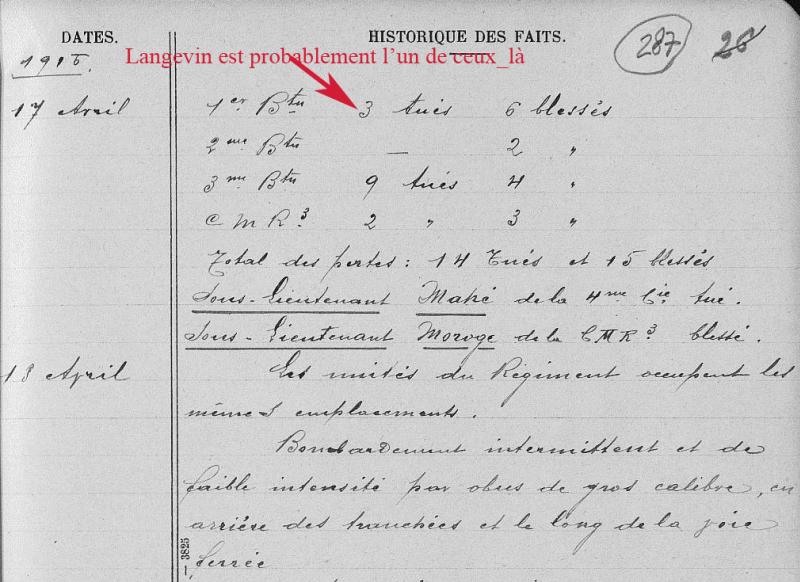 DATES.
HISTORIQUE DES FAITS.
287 26
1915.
Langevin est probablement l'un de ceux_là
17 Avril
1er Btn 3 tués 6 blessés
2me Btn — 2 "
3me Btn 9 tués 4 "
C M R3 2 " 3 "
Total des pertes : 14 Tués et 15 blessés
Sous-Lieutenant Mahé de la 4me Cie tué.
Sous-Lieutenant Moroge de la CMR3 blessé.
18 Avril
Les unités du Régiment occupent les
mêmes emplacements.
Bombardement intermittent et de
faible intensité par obus de gros calibre, en
arrière des tranchées et le long de la voie
ferrée
— 3825